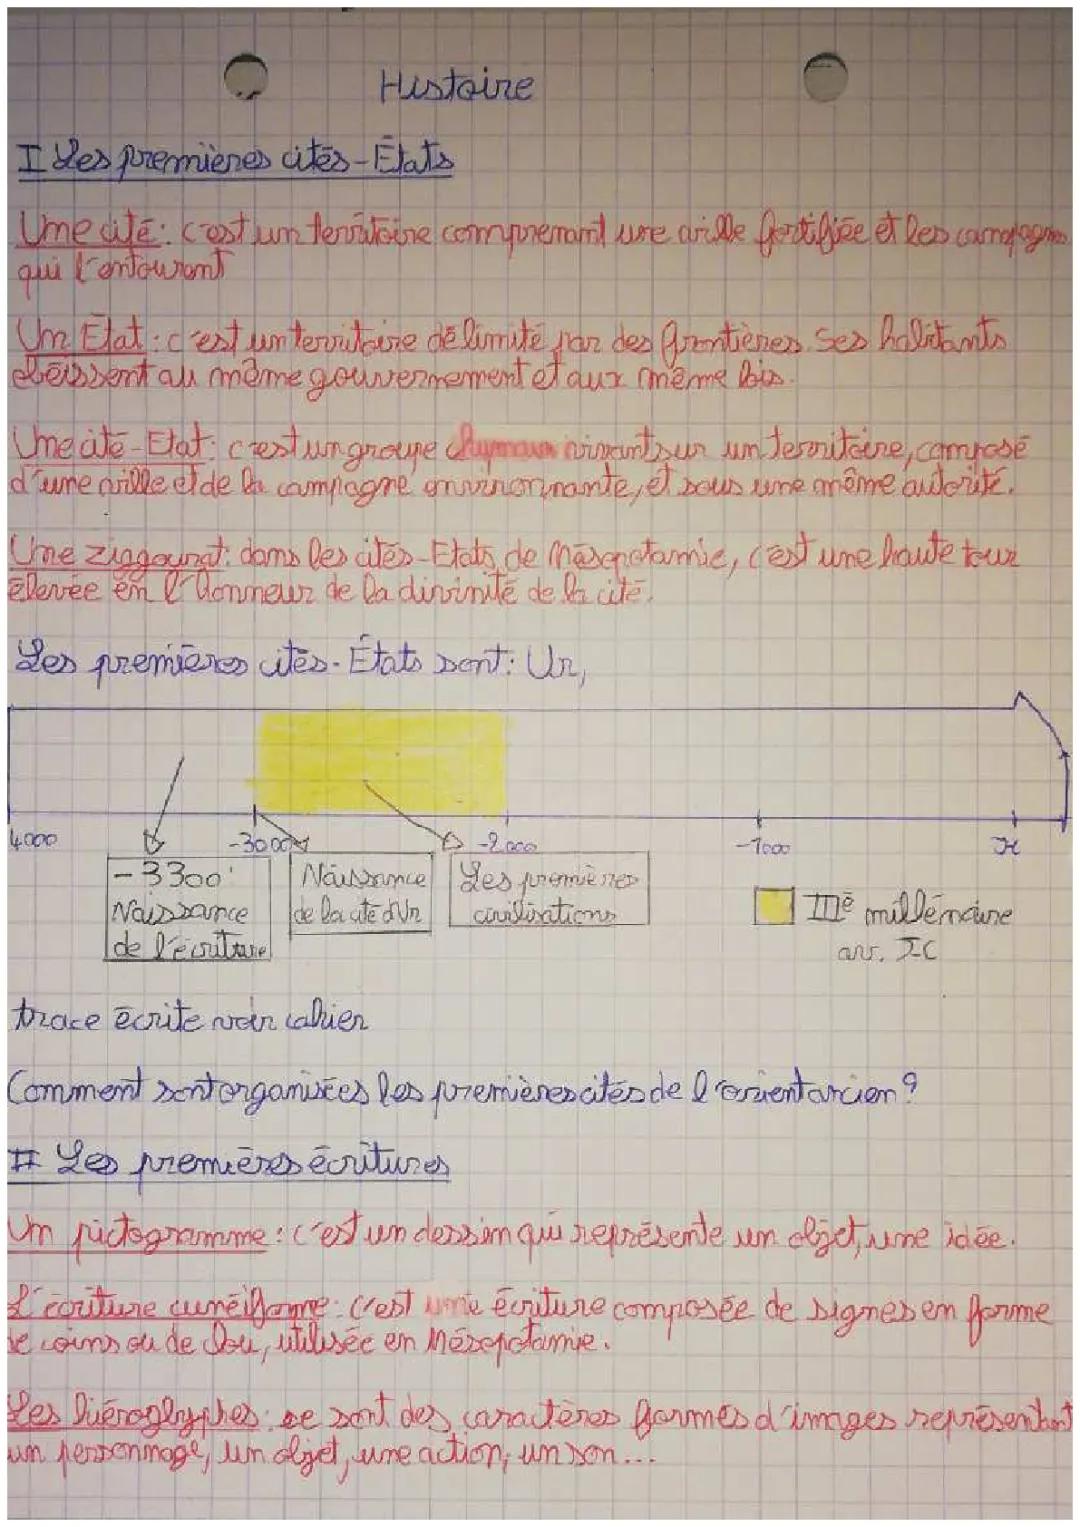 Histoire
I Les premières cités-États
Une cité: c'est un territoire comprenant une ville fortifiée et les campagnes
qui l'entourent
Un État: c'est un territoire délimité par des frontières. Ses habitants
obéissent au même gouvernement et aux même lois.
Une cité-État: c'est un groupe humain vivant sur un territoire, composé
d'une ville et de la campagne environnante, et sous une même autorité.
Une ziggourat: dans les cités-États de Mésopotamie, c'est une haute tour
élevée en l'honneur de la divinité de la cité.
Les premières cités-États sont: Ur,
4000
-3000
-2000
-1000
JC
-3300
Naissance
de l'écriture
Naissance
de la cité d'Ur
Les premières
civilisations
IIIe millénaire
av. J-C
trace écrite voir cahier
Comment sont organisées les premières cités de l'orient ancien?
II Les premières écritures
Un pictogramme: c'est un dessin qui représente un objet, une idée.
L'écriture cunéiforme: c'est une écriture composée de signes en forme
de coins ou de clou, utilisée en Mésopotamie.
Les hiéroglyphes: ce sont des caractères formés d'images représentant
un personnage, un objet, une action, un son...